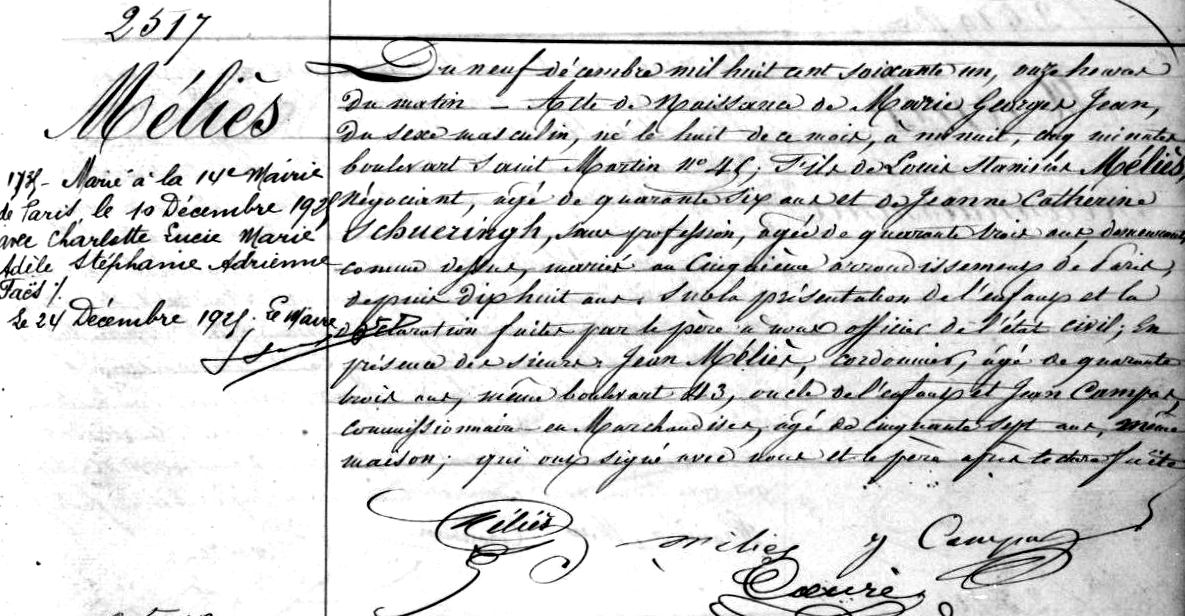 2517
Méliès
1735 - Marié à la 14e Mairie
de Paris, le 10 Décembre 1925
avec Charlotte Lucie Marie
Adèle Stéphanie Adrienne
Faës /.
Le 24 Décembre 1925. Le Maire
Du neuf décembre mil huit cent soixante un, onze heures
du matin - Acte de Naissance de Marie Georges Jean,
du sexe masculin, né le huit de ce mois, à minuit, cinq minutes
boulevart Saint Martin no 45; Fils de Louis Stanislas Méliès,
Négociant, agé de quarante six ans et de Jeanne Catherine
Schueringh, sans profession, agée de quarante trois ans, demeurants
comme dessus, mariés au Cinquième arrondissement de Paris,
depuis dix huit ans. Sur la présentation de l'enfant et la
déclaration faites par le père à nous officier de l'état civil; En
présence des sieurs Jean Méliès, cordonnier, âgé de quarante
trois ans, même boulevart 43, oncle de l'enfant et Jean Campas,
commissionnaire en Marchandises, âgé de cinquante sept ans, même
maison; qui ont signé avec nous et le père après lecture faite
Méliès méliès J Campas